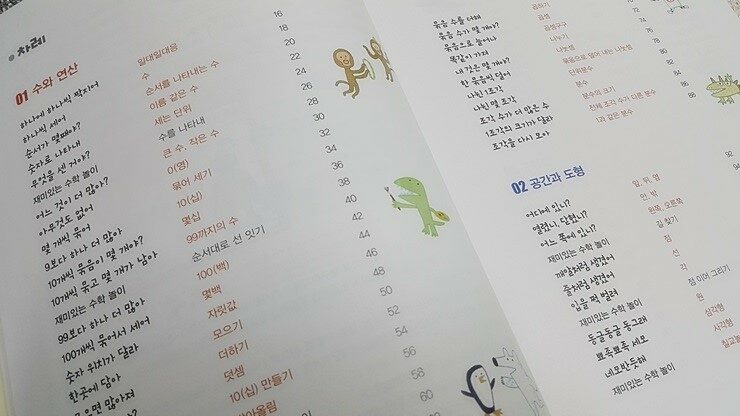 차례
01 수와 연산
하나에 하나씩 짝지어 일대일대응 16
하나씩 세어 수 18
순서가 몇째야? 순서를 나타내는 수 20
숫자로 나타내 이름 같은 수 22
무엇을 센 거야? 세는 단위 24
재미있는 수학 놀이 수를 나타내 26
어느 것이 더 많아? 큰 수, 작은 수 28
아무것도 없어 0(영) 30
몇 개씩 묶어 묶어 세기 32
9보다 하나 더 많아 10(십) 34
10개씩 묶음이 몇 개야? 몇십 36
10개씩 묶고 몇 개가 남아 99까지의 수 38
재미있는 수학 놀이 순서대로 선 잇기 40
99보다 하나 더 많아 100(백) 42
100개씩 묶어서 세어 몇백 44
숫자 위치가 달라 자릿값 46
한곳에 담아 모으기 48
모으면 많아져 더하기 50
덧셈 52
10(십) 만들기 54
받아올림 56
58
60
묶음 수를 더해 곱하기
묶음 수가 몇 개야? 곱셈 72
묶음으로 늘어나 곱셈구구 74
똑같이 가져 나누기 76
내 것은 몇 개야? 나눗셈 78
한 묶음씩 덜어 묶음으로 덜어 내는 나눗셈 80
나뉜 1조각 단위분수 82
나뉜 몇 조각 분수 84
조각 수가 더 많은 수 분수의 크기 86
1조각의 크기가 달라 전체 조각 수가 다른 분수 88
조각을 다시 모아 1과 같은 분수
02 공간과 도형
어디에 있니? 앞, 뒤, 옆 92
열렸니, 닫혔니? 안, 밖 94
어느 쪽에 있니? 왼쪽, 오른쪽
재미있는 수학 놀이 길 찾기
깨알처럼 생겼어 점
줄처럼 생겼어 선
입을 쩍 벌려 각
재미있는 수학 놀이 점 이어 그리기
동글동글 동그래 원
뾰족뾰족 세모 삼각형
네모반듯해 사각형
재미있는 수학 놀이